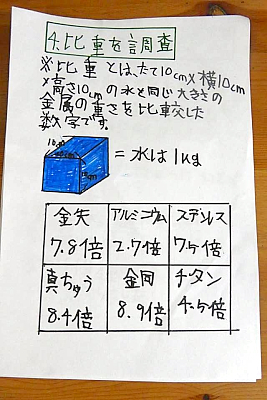 4.比重を調査
※比重とは、たて10cm×横10cm
×高さ10cmの水と同じ大きさの
金属の重さを比較した
数字です。
10cm
10cm
10cm
=水は1kg
鉄 アルミニウム ステンレス
7.8倍 2.7倍 7.5倍
真ちゅう 銅 チタン
8.4倍 8.9倍 4.5倍